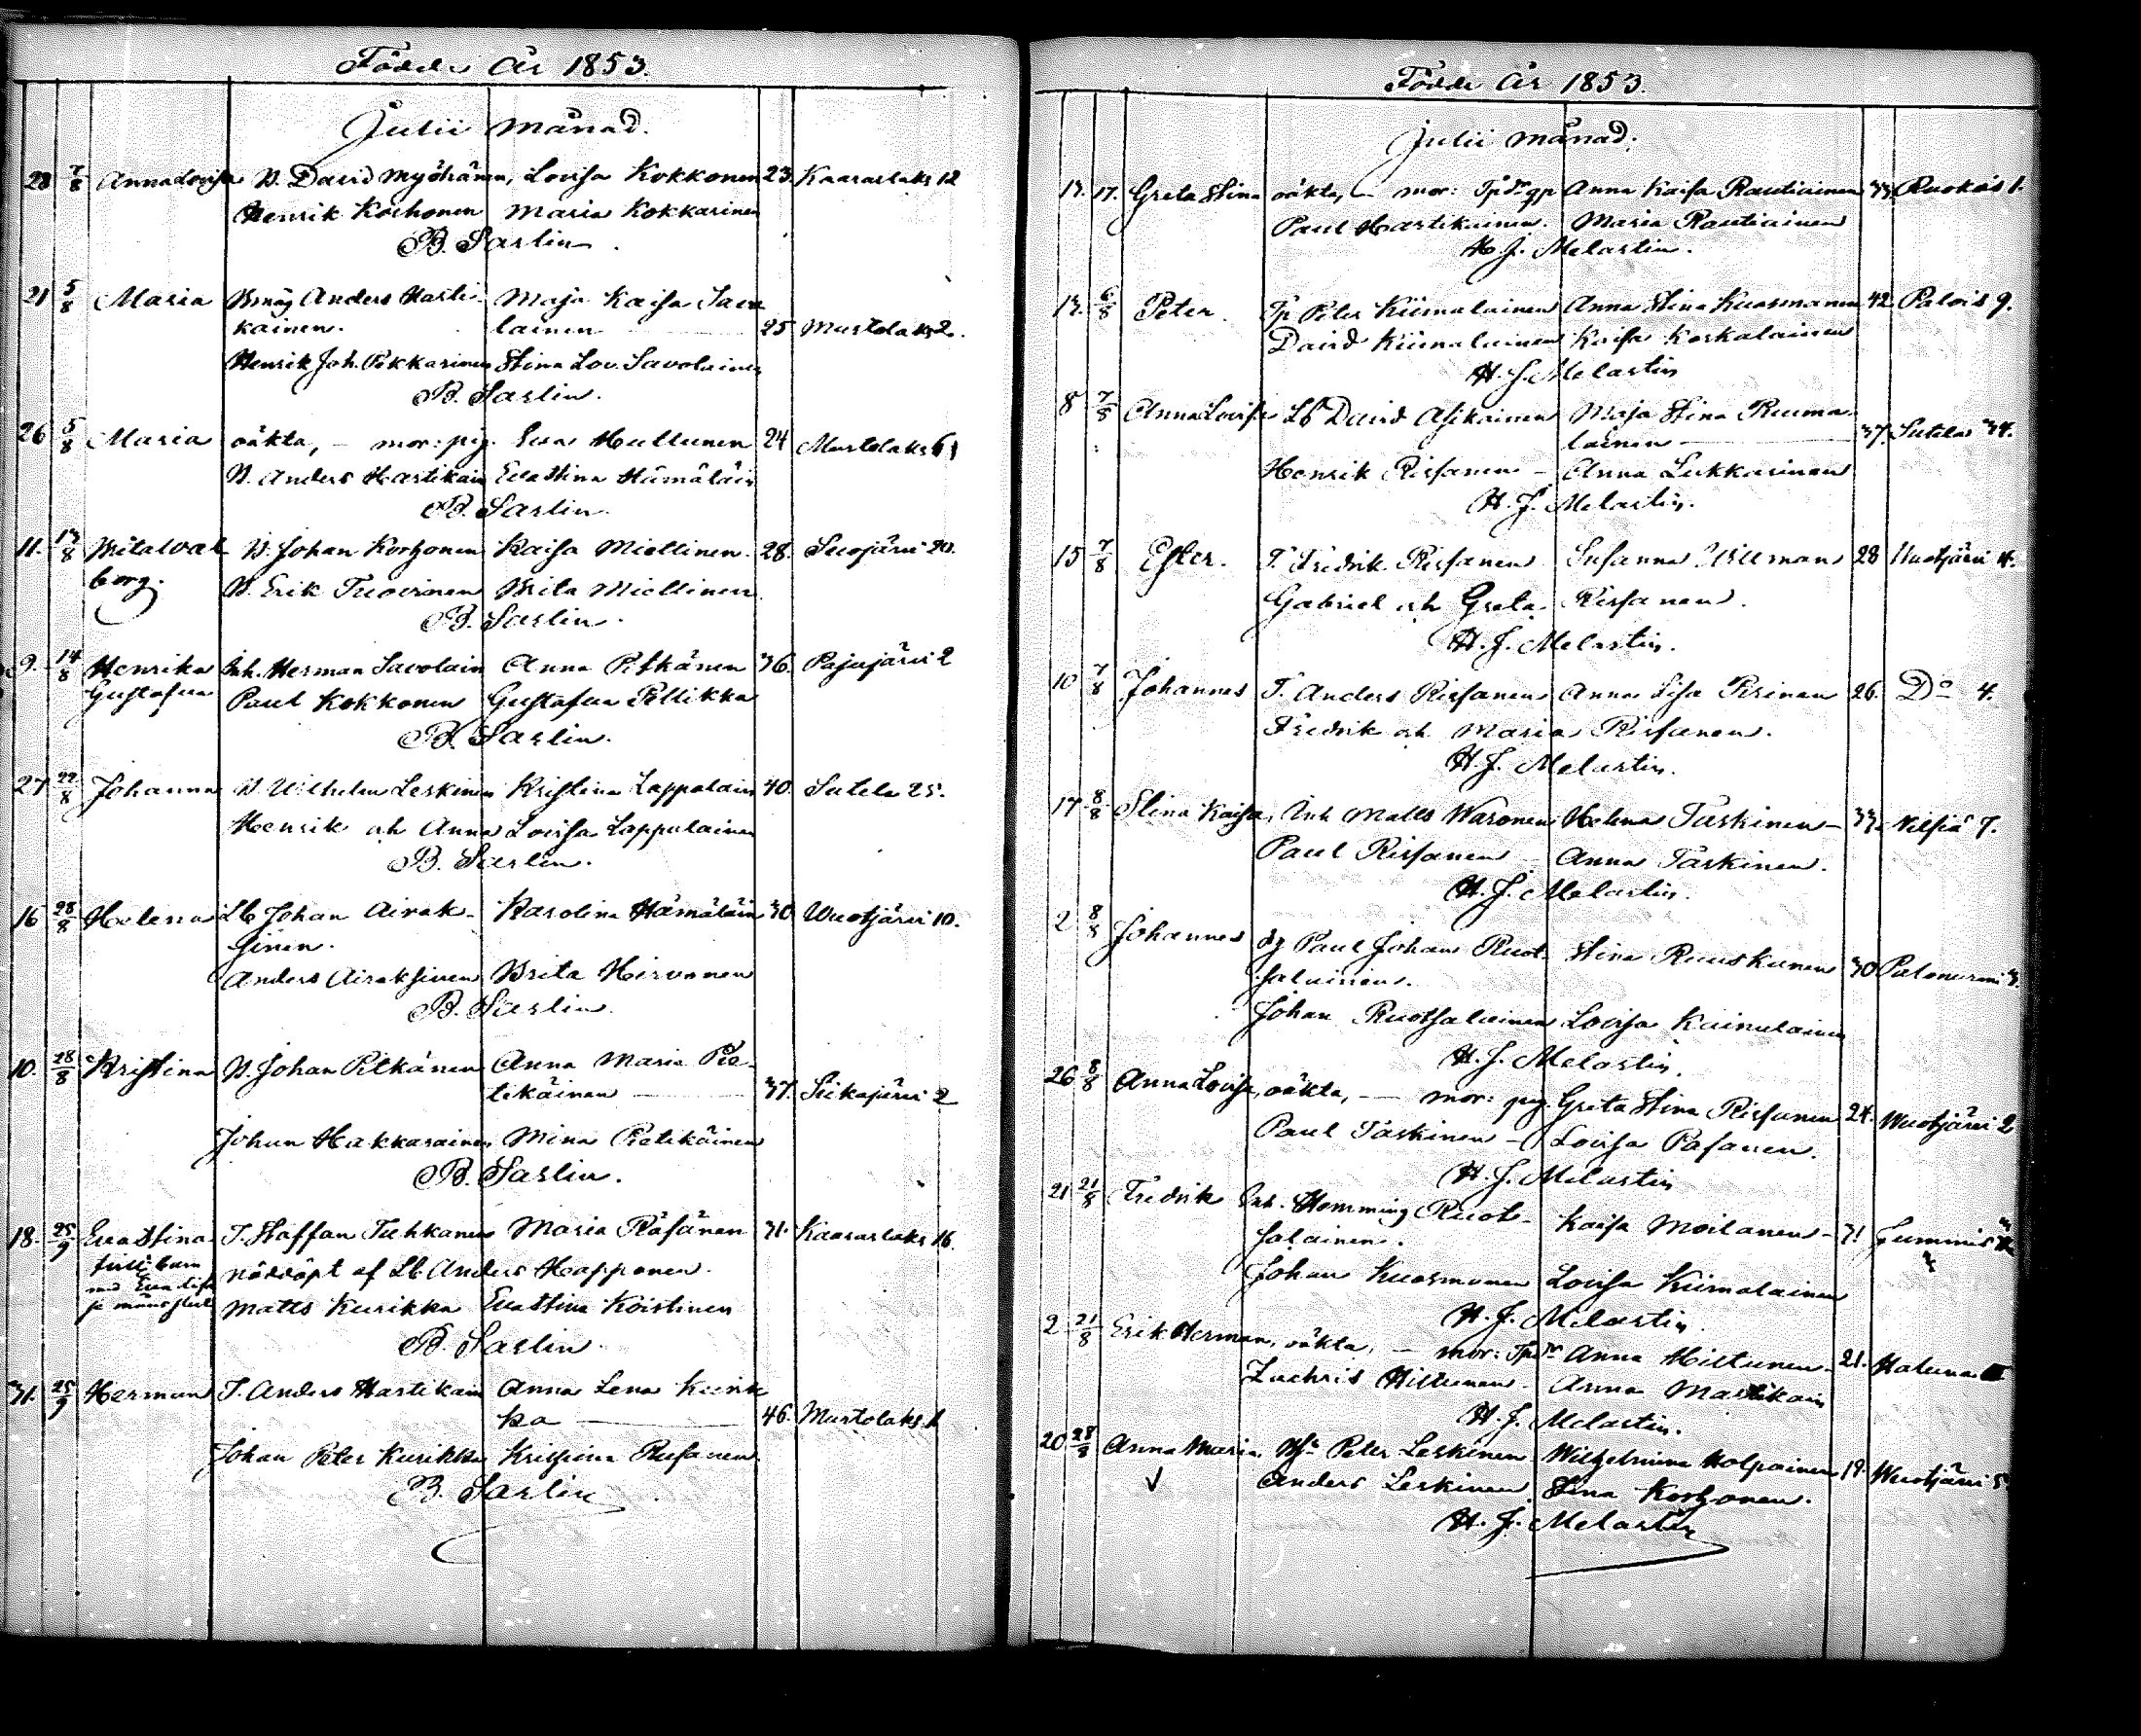 Födde År 1853.
Julii månad.
28 7/8 Anna Lovisa B. David Myöhänen, Lovisa Kokkonen 23. Kaaraslaks 12
Henrik Korhonen Maria Kokkarinen
B. Sarlin.
21 5/8 Maria Bmåg Anders Harti- Maja Kaisa Savo
kainen. lainen 25 Murtolaks 2.
Henrik Joh. Pekkarinen Stina Lov. Savolainen
B. Sarlin.
26 5/8 Maria oäkta, – mor: pig. Eva Huttunen 24 Murtolaks 6
B. Anders Hartikain Eva Stina Hämäläin
B. Sarlin.
11. /8 B. Johan Korhonen Kaisa Miettinen. 28. Suojärvi 20.
borg. B. Erik Tuovinen Brita Miettinen
B. Sarlin.
9. 14/8 Henrika Inh. Herman Savolain Anna Pitkänen 36. Pajujärvi 2
Gustafva Paul Kokkonen Gustafva Pellikka
B. Sarlin.
27 22/8 Johanna B. Wilhelm Leskinen Kristina Lappalain 40. Sutela 25.
Henrik och Anna Lovisa Lappalainen
B. Sarlin.
16 28/8 Helena Lb Johan Airak- Karolina Hämäläin 30 Wuotjärvi 10.
sinen.
Anders Airaksinen Brita Hirvonen
B. Sarlin.
10. 28/8 Kristina B. Johan Pitkänen Anna Maria Pie-
tikäinen 37. Siikajärvi 2
Johan Hakkarainen Mina Pietikäinen
B. Sarlin.
18. 25/9 Eva Stina T. Staffan Tuhkanen Maria Räsänen 31. Kaaraslaks 16.
nöddöpt af Lb. Anders Happonen.
Matts Kurikka Eva Stina Koistinen
B. Sarlin
31. 25/9 Herman T. Anders Hartikain Anna Lena Kurik
ka 46. Murtolaks 1
Johan Peter Kurikka Kristina Rusanen
B. Sarlin
Födde År 1853.
Julii månad.
13. 17. Greta Stina oäkta, – mor: Anna Kaisa Rautiainen 33. Ruokois 1.
Paul Hartikainen. Maria Rautiainen
H. J. Melartin.
13. 6/8 Peter. Tp Peter Kiimalainen Anna Stina Kuosmanen 42. Palois 9.
David Kiimalainen Kaisa Koskalainen
H. J. Melartin
8 7/8 Anna Lovisa Lb David Asikainen Maja Stina Ruuma-
lainen 37. Sutela 34.
Henrik Rissanen – Anna Lukkarinen
H. J. Melartin.
15 7/8 Ester. T. Fredrik Rissanen Susanna Willman 28 Wuotjärvi 4.
Gabriel och Greta Rissanen.
H. J. Melartin.
10 7/8 Johannes T. Anders Rissanen Anna Lisa Pirinen 26. Do 4.
Fredrik och Maria Rissanen.
H. J. Melartin.
17 8/8 Stina Kaisa, Inh Matts Waronen Helena Taskinen – 33. Nilsiä 7.
Paul Rissanen – Anna Taskinen.
H. J. Melartin.
2 8/8 Johannes dg Paul Johan Ruot- Stina Ruuskanen 30 Palonurmi 3.
salainen.
Johan Ruotsalainen Lovisa Kainulainen
H. J. Melartin.
26 8/8 Anna Lovisa, oäkta, – mor: pig. Greta Stina Rissanen 24. Wuotjärvi 2
Paul Taskinen – Lovisa Pasanen.
H. J. Melartin
21 21/8 Fredrik Inh. Hemming Ruot- Kaisa Moilanen – 31
salainen.
Johan Kuosmanen Lovisa Kiimalainen
H. J. Melartin.
2 21/8 Erik Herman, oäkta, – mor: Anna Hiltunen – 21. Haluna
Zachris Hiltunen – Anna Martikain
H. J. Melartin.
20 28/8 Anna Maria Peter Leskinen Wilhelmina Holpainen 19. Wuotjärvi 5
Anders Leskinen. Stina Korhonen.
H. J. Melartin